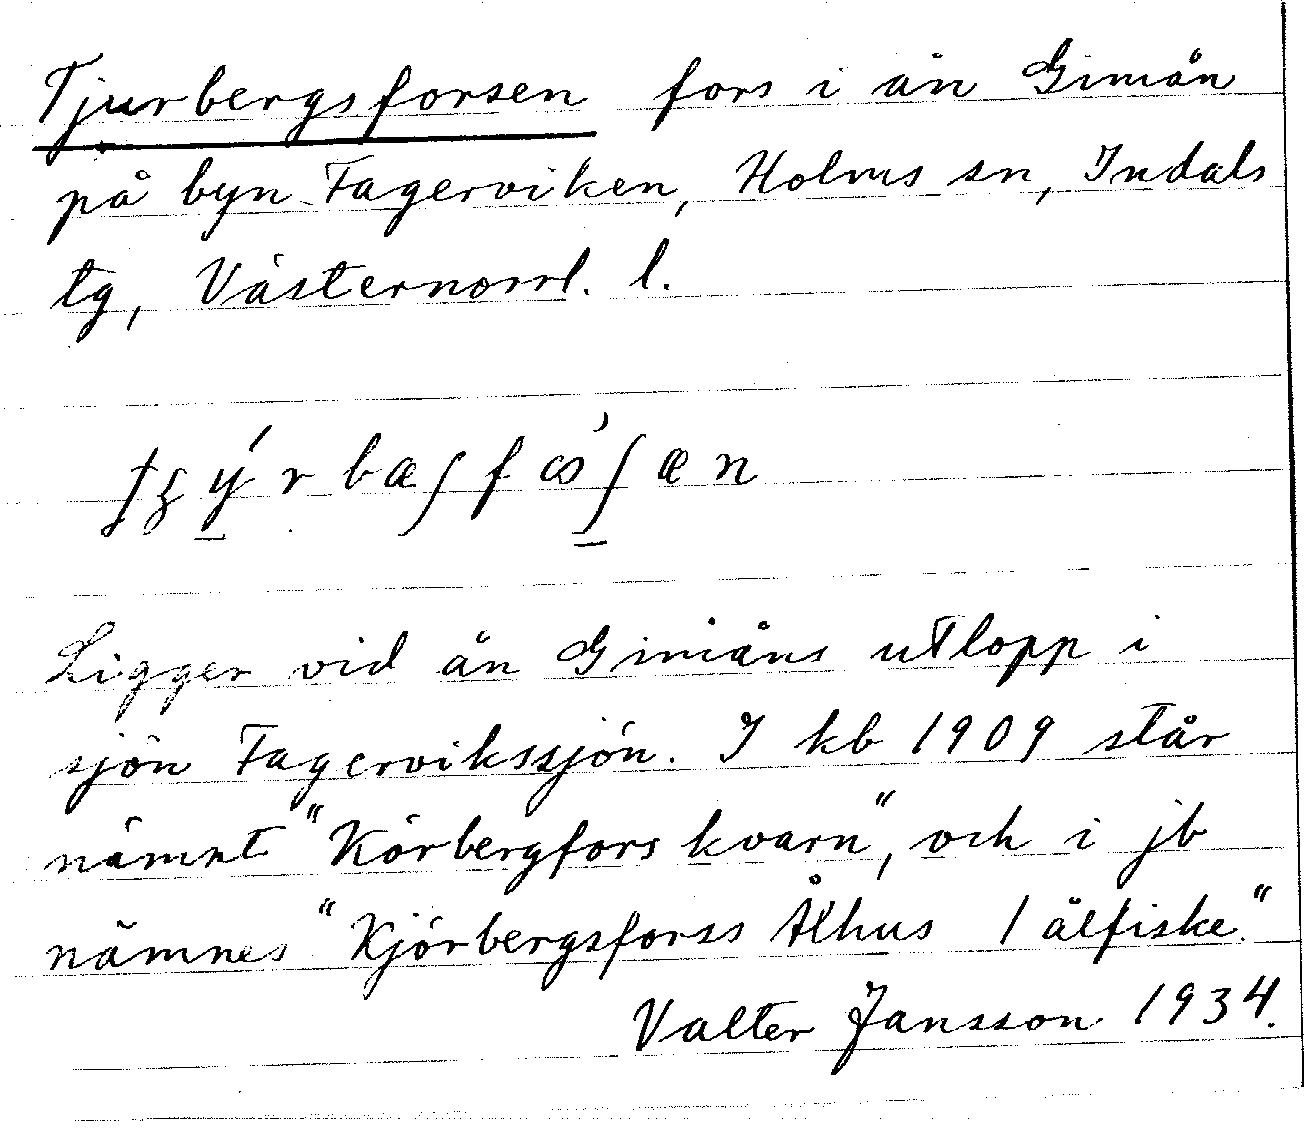 Tjurbergsforsen fors i ån Gimån
på byn Fagerviken, Holms sn, Indals
tg, Västernorrl. l.
Ligger vid ån Gimåns utlopp i
sjön Fagervikssjön. I kb 1909 står
nämnt "Körbergfors kvarn", och i jb
nämnes "Kjörbergsforss Ålhus 1 älfiske."
Valter Jansson 1934.